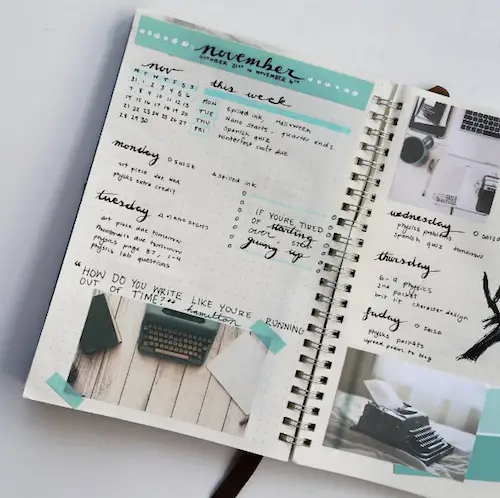 november
OCTOBER 31ST to NOVEMBER 6TH
nov
M T W T F S S
31 1 2 3 4 5 6
7 8 9 10 11 12 13
14 15 16 17 18 19 20
21 22 23 24 25 26 27
28 29 30
this week
MON Spilled ink, Halloween
TUE Nano starts, quarter ends
THU Spanish quiz
FRI Winterfest craft due
monday
art piece due wed
physics extra credit
spilled ink
tuesday nano starts
art piece due tomorrow
thumbnails due tomorrow
physics page 87, 1-4
physics lab questions
IF YOU'RE TIRED
OF starting
over, STOP
giving up
"HOW DO YOU WRITE LIKE YOU'RE RUNNING
OUT OF TIME?"
hamilton
wednesday
physics problems
spanish quiz tomorrow
thursday
6-9 physics
2nd packet
brit lit character design
friday
physics packets
upload poem to blog